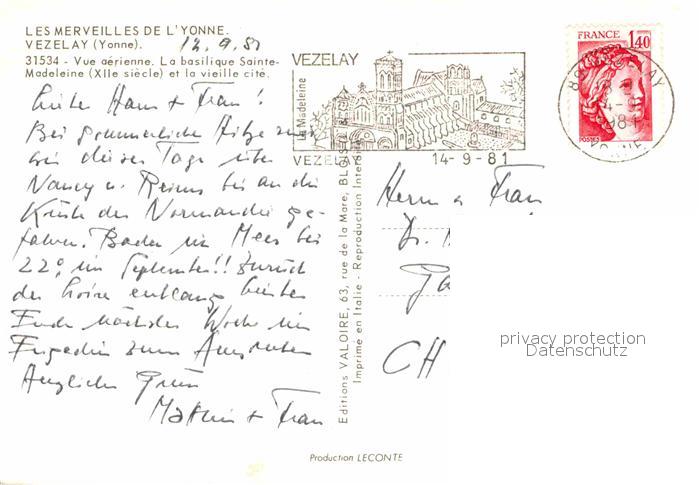 LES MERVEILLES DE L'YONNE.
VEZELAY (Yonne). 12.9.81
31534 - Vue aérienne. La basilique Sainte-
Madeleine (XIIe siècle) et la vieille cité.
VEZELAY
la Madeleine
VEZELAY
14-9-81
FRANCE
1,40
POSTES
Liebe Hans + Frau!
Bei sommerliche Hitze sind
wir dieser Tage über
Nancy u. Reims bis an die
Küste der Normandie ge-
fahren. Baden im Meer bei
22°, im September!! Zurück
der Loire entlang
Ende nächster Woche im
Engadin zum Ausruhen
Herzliche Grüße
+ Frau
Editions VALOIRE, 63, rue de la Mare, BLOIS
Imprimé en Italie - Reproduction Interdite
Herrn u Frau
Dr.
CH
privacy protection
Datenschutz
Production LECONTE